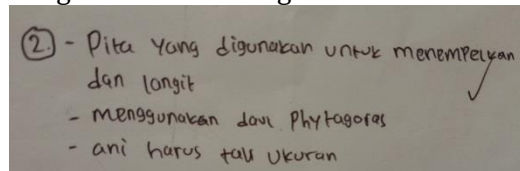 ② - Pita yang digunakan untuk menempelkan
dan langit
- menggunakan daul Phytagoras
- ani harus tau ukuran